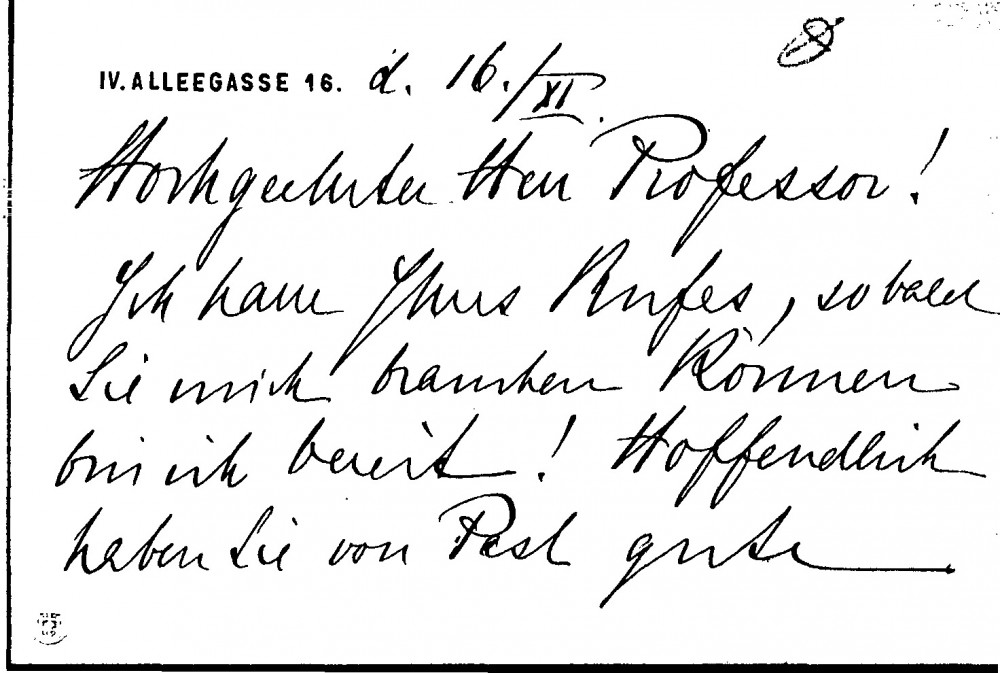 IV. ALLEEGASSE 16. d. 16./XI.
Hochgeehrter Herr Professor!
Ich harre Ihres Rufes, sobald
Sie mich brauchen können
bin ich bereit! Hoffendlich
haben Sie von Pest gute